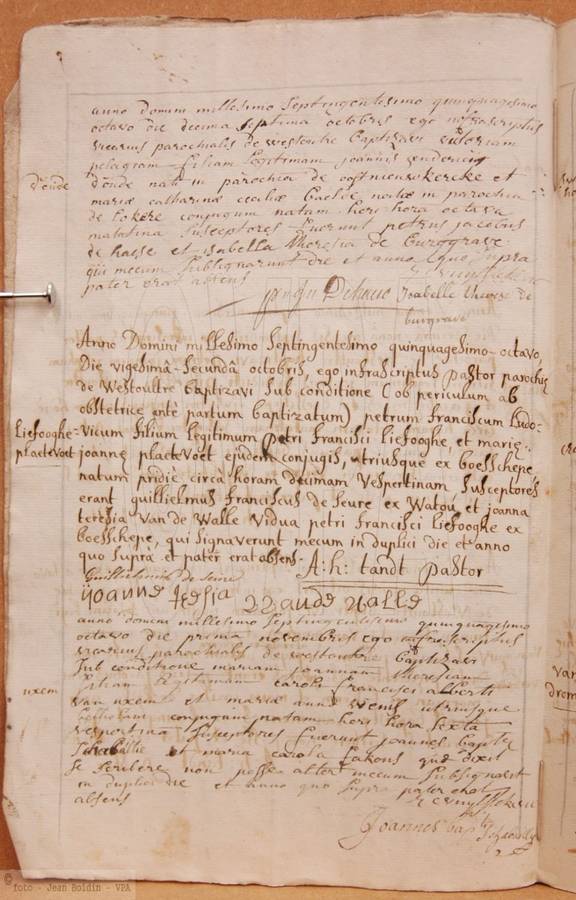 anno domini millesimo septingentesimo quinquagesimo
octavo die decima septima octobris ego infrascriptus
vicarius parochialis de westoutre baptizavi
pelagiam filiam legitimam joannis
dónde nati in parochia de oostnieuwkercke et
mariæ catharinæ ceciliæ natæ in parochia
de Lokere conjugum natam heri hora octava
matutina susceptores fuerunt petrus jacobus
de hasse et isabella theresia de burggrave
qui mecum subsignarunt die et anno quo supra
pater erat absens
dónde
Isabelle de
burgrave
Anno Domini millesimo septingentesimo quinquagesimo-octavo,
Die vigesimâ-secundâ octobris, ego infrascriptus pastor parochiæ
de Westoultre baptizavi sub conditione (ob periculum ab
obstetrice ante partum baptizatum) petrum franciscum Ludo-
Liefooghe-
vicum filium legitimum petri francisci liefooghe, et mariæ-
plaetevoet
joannæ plaetevoet ejusdem conjugis, utriusque ex boesschepe
natum pridie circà horam decimam vespertinam susceptores
erant guillielmus franciscus de seure ex Watou et joanna
teresia van de Walle vidua petri francisci liefooghe ex
boesschepe, qui signaverunt mecum in duplici die et anno
quo supra et pater erat absens- A: h: tandt pastor
anno domini millesimo septingentesimo quinquagesimo
octavo die prima novembris ego infrascriptus
vicarius parochialis de westoutre baptizavi
sub conditione mariam joannam theresiam
filiam legitimam caroli francisci alberti
uxem
van uxem et mariæ annæ utriusque
conjugum natam heri hora sexta
vespertina susceptores fuerunt joannes baptis
et maria carola quæ dixit
se scribere non posse alter mecum subsignavit
in duplici die et anno quo supra pater erat
absens
Joannes bap
© foto - Jean Boldin - VPA